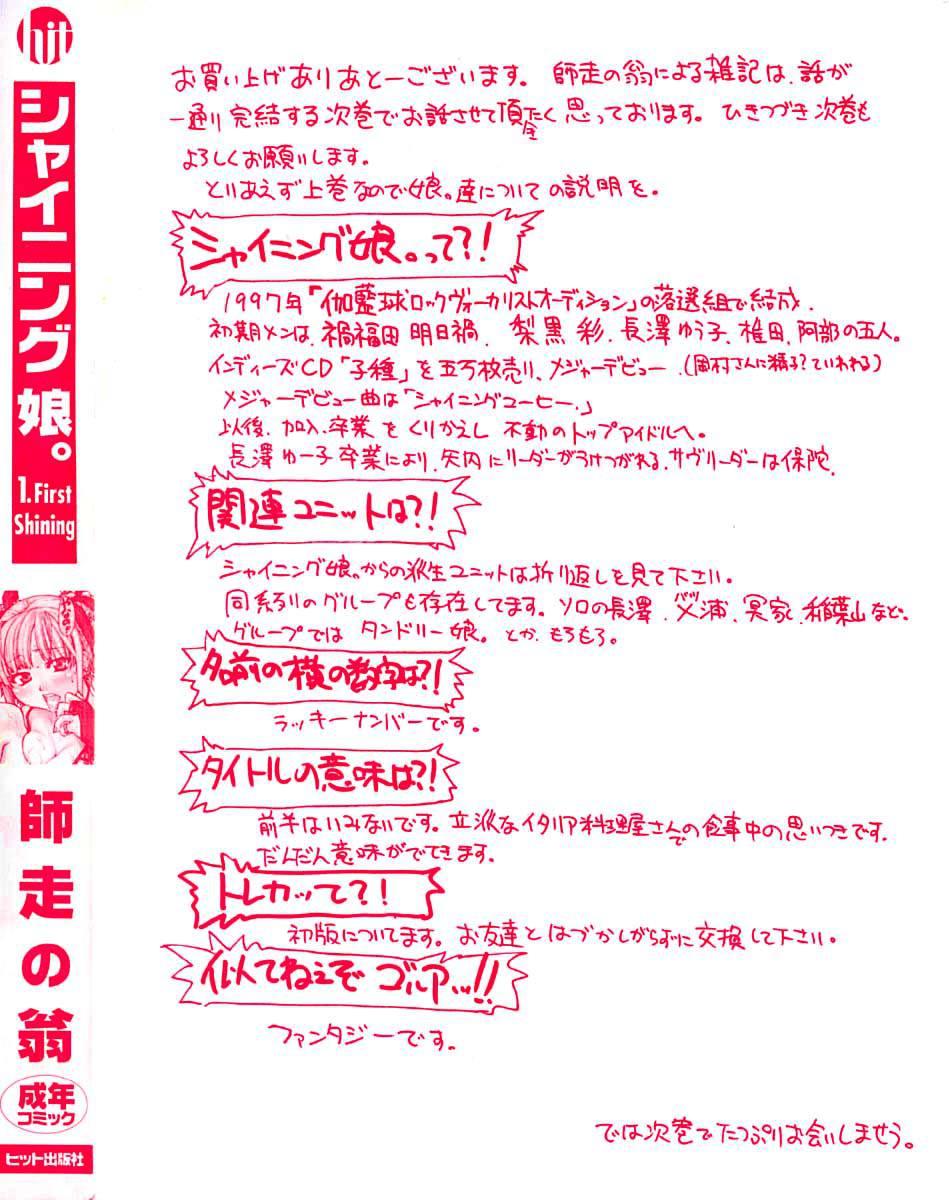 hit
シャイニング娘。
1.First
Shining
師走の翁
成年
コミック
ヒット出版社
お買い上げありあとーございます。 師走の翁による雑記は、話が
一通り完結する次巻でお話させて頂たく思っております。 ひきつづき次巻も
よろしくお願いします。
とりあえず上巻なので娘。達についての説明を。
シャイニング娘。って?!
1997年「伽藍球ロックヴォーカリストオーディション」の落選組で結成.
初期メンは、禍福田 明日禍、 梨黒 彩、長澤ゆう子、椎田、阿部の五人。
インディーズCD「子種」を五万枚売り、メジャーデビュー.(岡村さんに 子?ていわれる)
メジャーデビュー曲は「シャイニングコーヒー.」
以後、加入、卒業をくりかえし 不動のトップアイドルへ。
長澤ゆー子卒業により、矢内にリーダーがうけつがれる、サヴリーダーは保陀.
関連ユニットは?!
シャイニング娘。からの派生ユニットは折り返しを見て下さい。
同系列のグループも存在してます。ソロの長澤、 浦、冥家、稲葉山など。
グループでは タンドリー娘。とか、もろもろ。
名前の横の数字は?!
ラッキーナンバーです。
タイトルの意味は?!
前半はいみないです。立派なイタリア料理屋さんでの食事中の思いつきです.
だんだん意味がでてきます。
トレカッて?!
初版についてます。お友達とはづかしがらずに交換して下さい。
似てねぇぞ ゴルアッ!!
ファンタジーです。
では次巻でたっぷりお会いしませう。